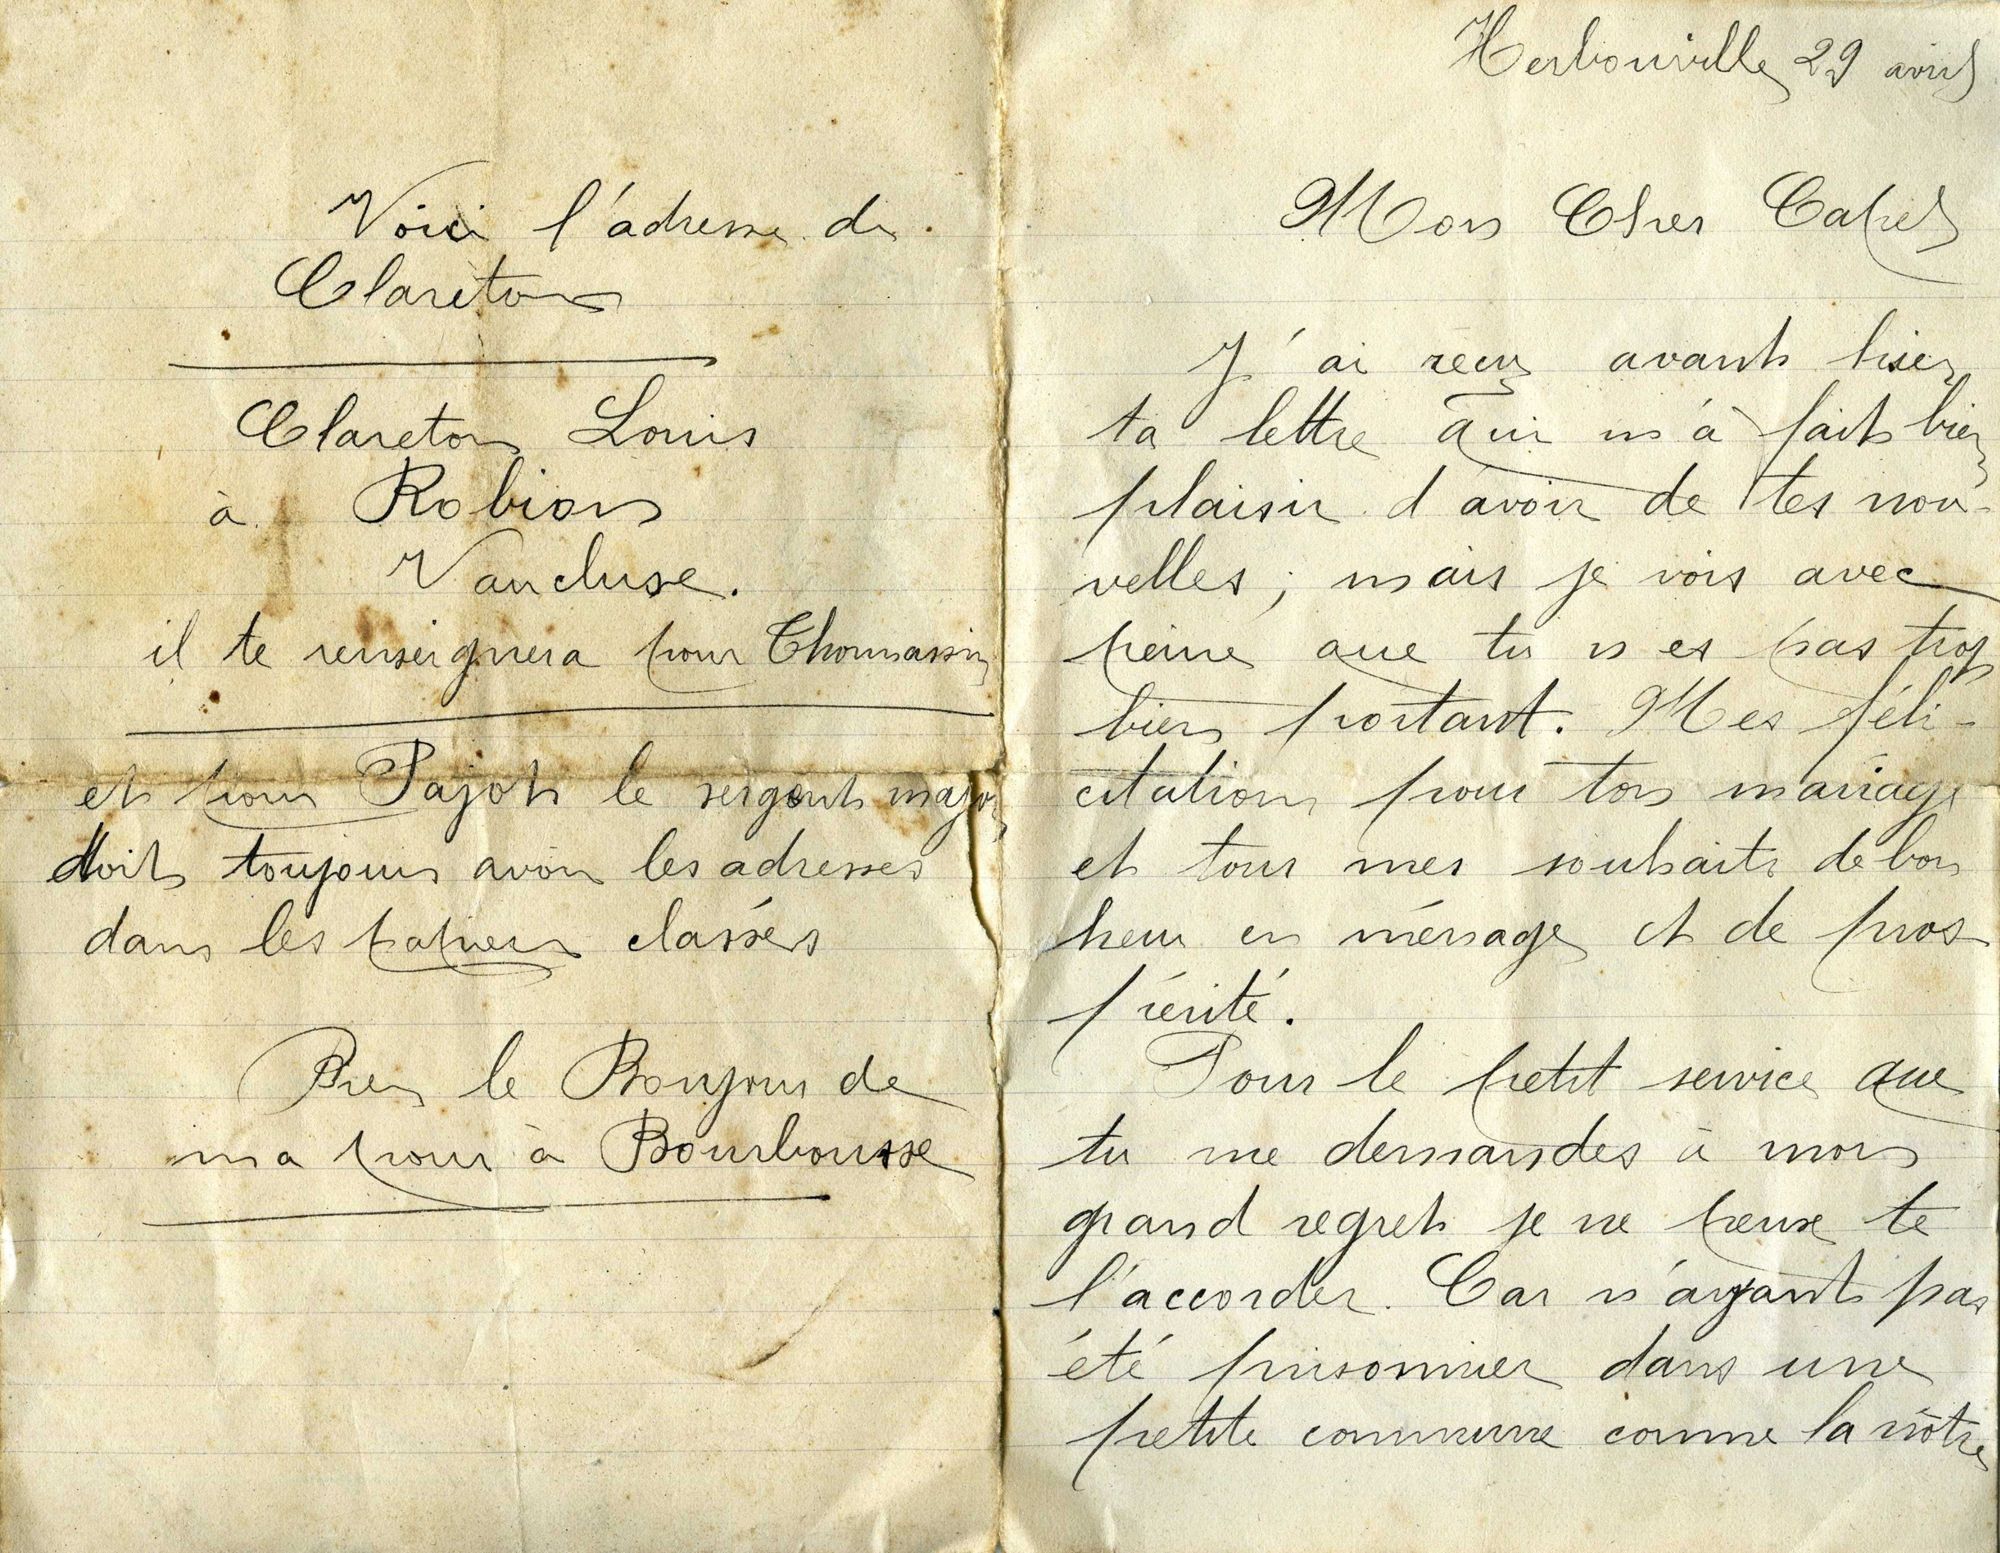 Herbouville 29 avril
Mon Cher Capel
J'ai reçu avant hier
ta lettre qui m'à fait bien
plaisir d avoir de tes nou-
velles ; mais je vois avec
peine que tu n es pas trop
bien portant. Mes féli-
citations pour ton mariage
et tous mes souhaits de bon
heur en ménage et de pros
périté.
Pour le petit service que
tu me demandes à mon
grand regret je ne peux te
l'accorder. Car n'ayant pas
été prisonnier dans une
petite commune comme la nôtre
Voici l'adresse de
Clareton
Clareton Louis
à Robion
Vaucluse.
il te renseignera pour Thomassin
et pour Pajot le sergent major
doit toujours avoir les adresses
dans les papiers classés
Bien le Bonjour de
ma pour à Bourbousse